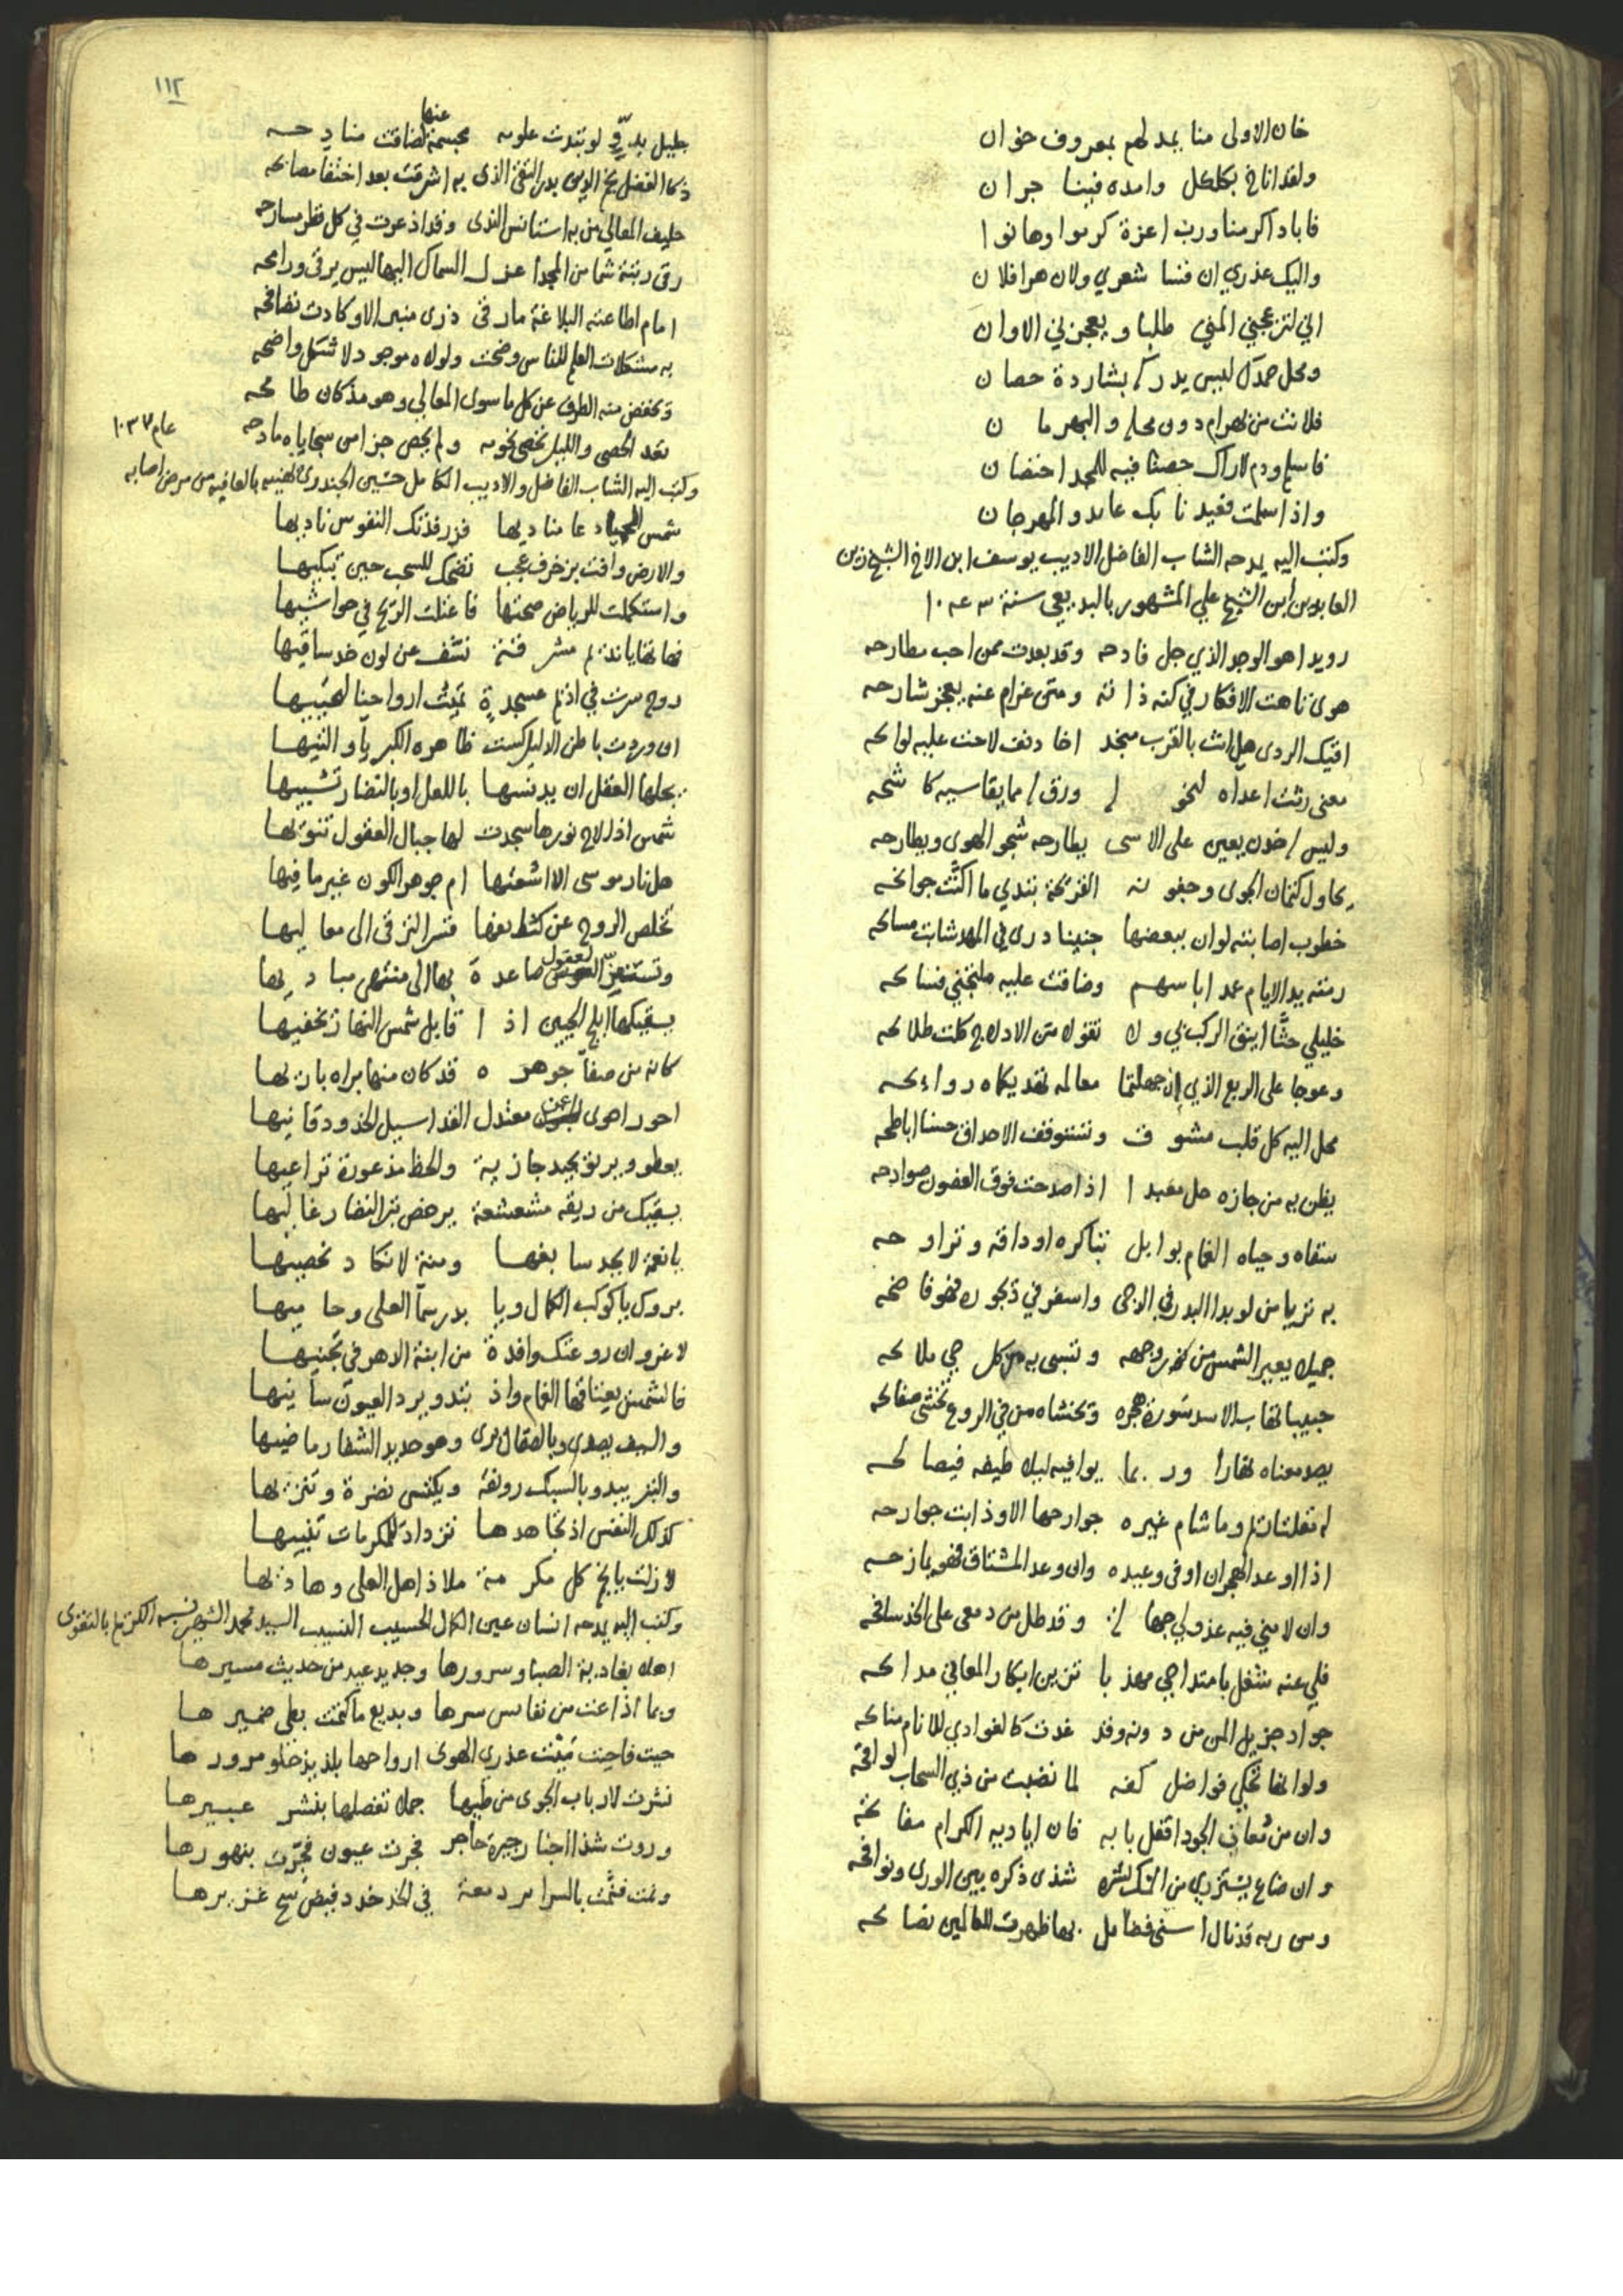 خان الاولى منا يمد لهم بمعروف خوان
ولقد اناخ بكلكل وامده فينا جران
فاباد اكرمنا ورب اعزة كرموا وهانوا
واليك عذري ان فسا شعري ولان هرا فلان
اني لتزعجني المنى طلبا ويعجزني الاوان
ومحل حمدك ليس يدرك بشاردة حصان
فلانت من بهرام دون محله والبهرمان
فاسلم ودم لاراك حصنا فيه للمجد احتضان
واذا سلمت فعيد نا بك عايد والمهرجان
وكتب اليه يمدحه الشاب الفاضل الاديب يوسف ابن الاخ الشيخ زين
العابدين ابن الشيخ علي المشهور بالبديعي سنة
رويدا هو الوجد الذي جل فادحه وقد بعدت ممن احب مطارحه
هوى تاهت الافكار في كنه ذاته ومتى غرام عنه يعجز شارحه
اقيك الردى هل انت بالقرب منجد اخا دنف لاحت عليه لوايحه
معنى رثت اعداه لنحوله ورق له مما يقاسيه كاشحه
وليس له خدن يعين على الاسى يطارحه شجو الهوى ويطارحه
يحاول كتمان الجوى وجفونه القريحة تبدي ما اكنت جوانحه
خطوب اصابته لو ان ببعضها جنينا درى في المهد شابت مسايحه
رمته يد الايام عمدا باسهم وضاقت عليه فسايحه
خليلي حثا اينق الركب بي ولا تقولا من الادلاج كلت طلايحه
وعوجا على الربع الذي ان جهلتما معالمه تهديكماه روايحه
محل اليه كل قلب مشوق وتستوقف الاحداق حسنا اباطحه
يظن به من جازه حل معبدا اذا صدحت فوق الغصون صوادحه
سقاه وحياه الغمام بوابل تباكره اوداقه وتراوحه
به تريا من لو بدا البدر في الدجى واسفر في ديجوره فهو فاضحه
جميل يعير الشمس من نوره وجهه وتسبي به من كل حي ملايحه
حبيبا تهاب الاسد سورة هجره وتخشاه من في الروع تخشى صفايحه
يصد معناه نهارا وربما يوافيه ليلا طيفه فيصالحه
له لفتات وما شام غيره جوارحها الا وذابت جوارحه
اذا اوعد الهجران اوفى وعيده وان وعد المشتاق فهو يمازحه
وان لامني فيه عذولي جهالة وقد طل من دمعي على الخد سافحه
فلي عنه شغل بامتداحي مهذبا تزين ابكار المعاني مدايحه
جواد جزيل المن من دونه وقد غدت كالغوادي للانام منايحه
ولو انها تحكي فواضل كفه لما نضبت من ذي السحاب لواقحه
وان من معاني الجود اقفل بابه فان اياديه الكرام مفاتحه
وان ضاع يستزري من المسك نشره شذى ذكره بين الورى ونوافحه
ومن ربه قد نال اسنى فضايل بها ظهرت للعالمين نصايحه
١١٢
جليل يدق لو تبدت علومه مجسمة عنها لضاقت منادحه
ذكا الفضل نجم الدين بدر التقى الذي به اشرقت بعد اختفا مصابحه
حليف المعالي من به استانس الندى وقد اذعرت في كل قطر مسارحه
رقى رتبة شما من المجد اعزل السماك اليها ليس يرقى ورامحه
امام اطاعته البلاغة ما رقى ذرى منبر الا وكادت تصافحه
به مشكلات العلم للناس وضحت ولولاه موجود لاشكل واضحه
وتخفض منه الطرف عن كل ما سوى المعالي وهو مذ كان طامحه
تعد الحصى والليل تحصى نجومه ولم يحص جزا من سجاياه مادحه
عام ١٠٣٧
وكتب اليه الشاب الفاضل والاديب الكامل حسين الجندري يهنيه بالعافية من مرض اصابه
شمس الحيا دعا مناديها فزر فدتك النفوس ناديها
والارض وافت بزخرف عجب تضحك للسحب حين تبكيها
واستكملت للرياض صحتها فاعتلت الريح في حواشيها
فهاتها يا نديم مشرقة تشف عن لون خد ساقيها
روح سرت في اديم عسجدة تميت ارواحنا لتحييها
ان وردت باطن الذليل كست ظاهره الكبرياء والتيها
يجلها العقل ان يدنسها باللعل او بالنضار تشبيها
شمس اذا لاح نورها سجدت لها جبال العقول تنويها
هل نار موسى الا اشعتها ام جوهر الكون غير ما فيها
تخلص الروح عن كثايفها فتسر الترقى الى معاليها
وتستفز العقول صاعدة بها الى منتهى مباديها
يسقيكها ابلج الجبين اذا قابل شمس النهار يخفيها
كانه من صفا جوهره قد كان منها براه باريها
احور احوى اغن معتدل القد اسيل الخدود قانيها
يعطو ويرنو بجيد جازية ولحظ مذعورة تراعيها
يسقيك من ريقه مشعشعة يرخص تبر النضار غاليها
يا نعمة لا يجد سابغها ومنة لا نكاد نحصيها
بروك يا كوكب الكمال ويا بدر سما العلى وحاميها
لا غرو ان روعتك وافدة من ابنة الدهر في تجنيها
فالشمس يعتاقها الغمام واذ تبدو يرد العيون سانيها
والسيف يصدى وبالصقال يرى وهو حديد الشفار ماضيها
والتبر يبدو بالسبك رونقه ويكتسى نضرة وتنزيها
كذلك النفس اذ تجاهدها تزداد للمكرمات تنبيها
لا زلت يا نجم كل مكرمة ملاذ اهل العلى وهاديها
وكتب اليه يمدحه انسان عين الكمال الحسيب النسيب السيد محمد الشهير نسبه الكريم بالتقوى
اهلا بغادية الصبا وسرورها وجديد عيد من حديث مسيرها
وبما اذاعت من نفايس سرها وبديع ما كتمت بطي ضميرها
حيت فاحيت ميت عذري الهوى ارواحها بلذيذ حلو مرورها
نثرت لارباب الجوى من طيها جملا تفصلها بنشر عبيرها
وروت شذا اخبار جيرة حاجر فجرت عيون فجرت بنهورها
ونمت فنمت بالسراير دمعة في الخد خدد فيض سح غزيرها